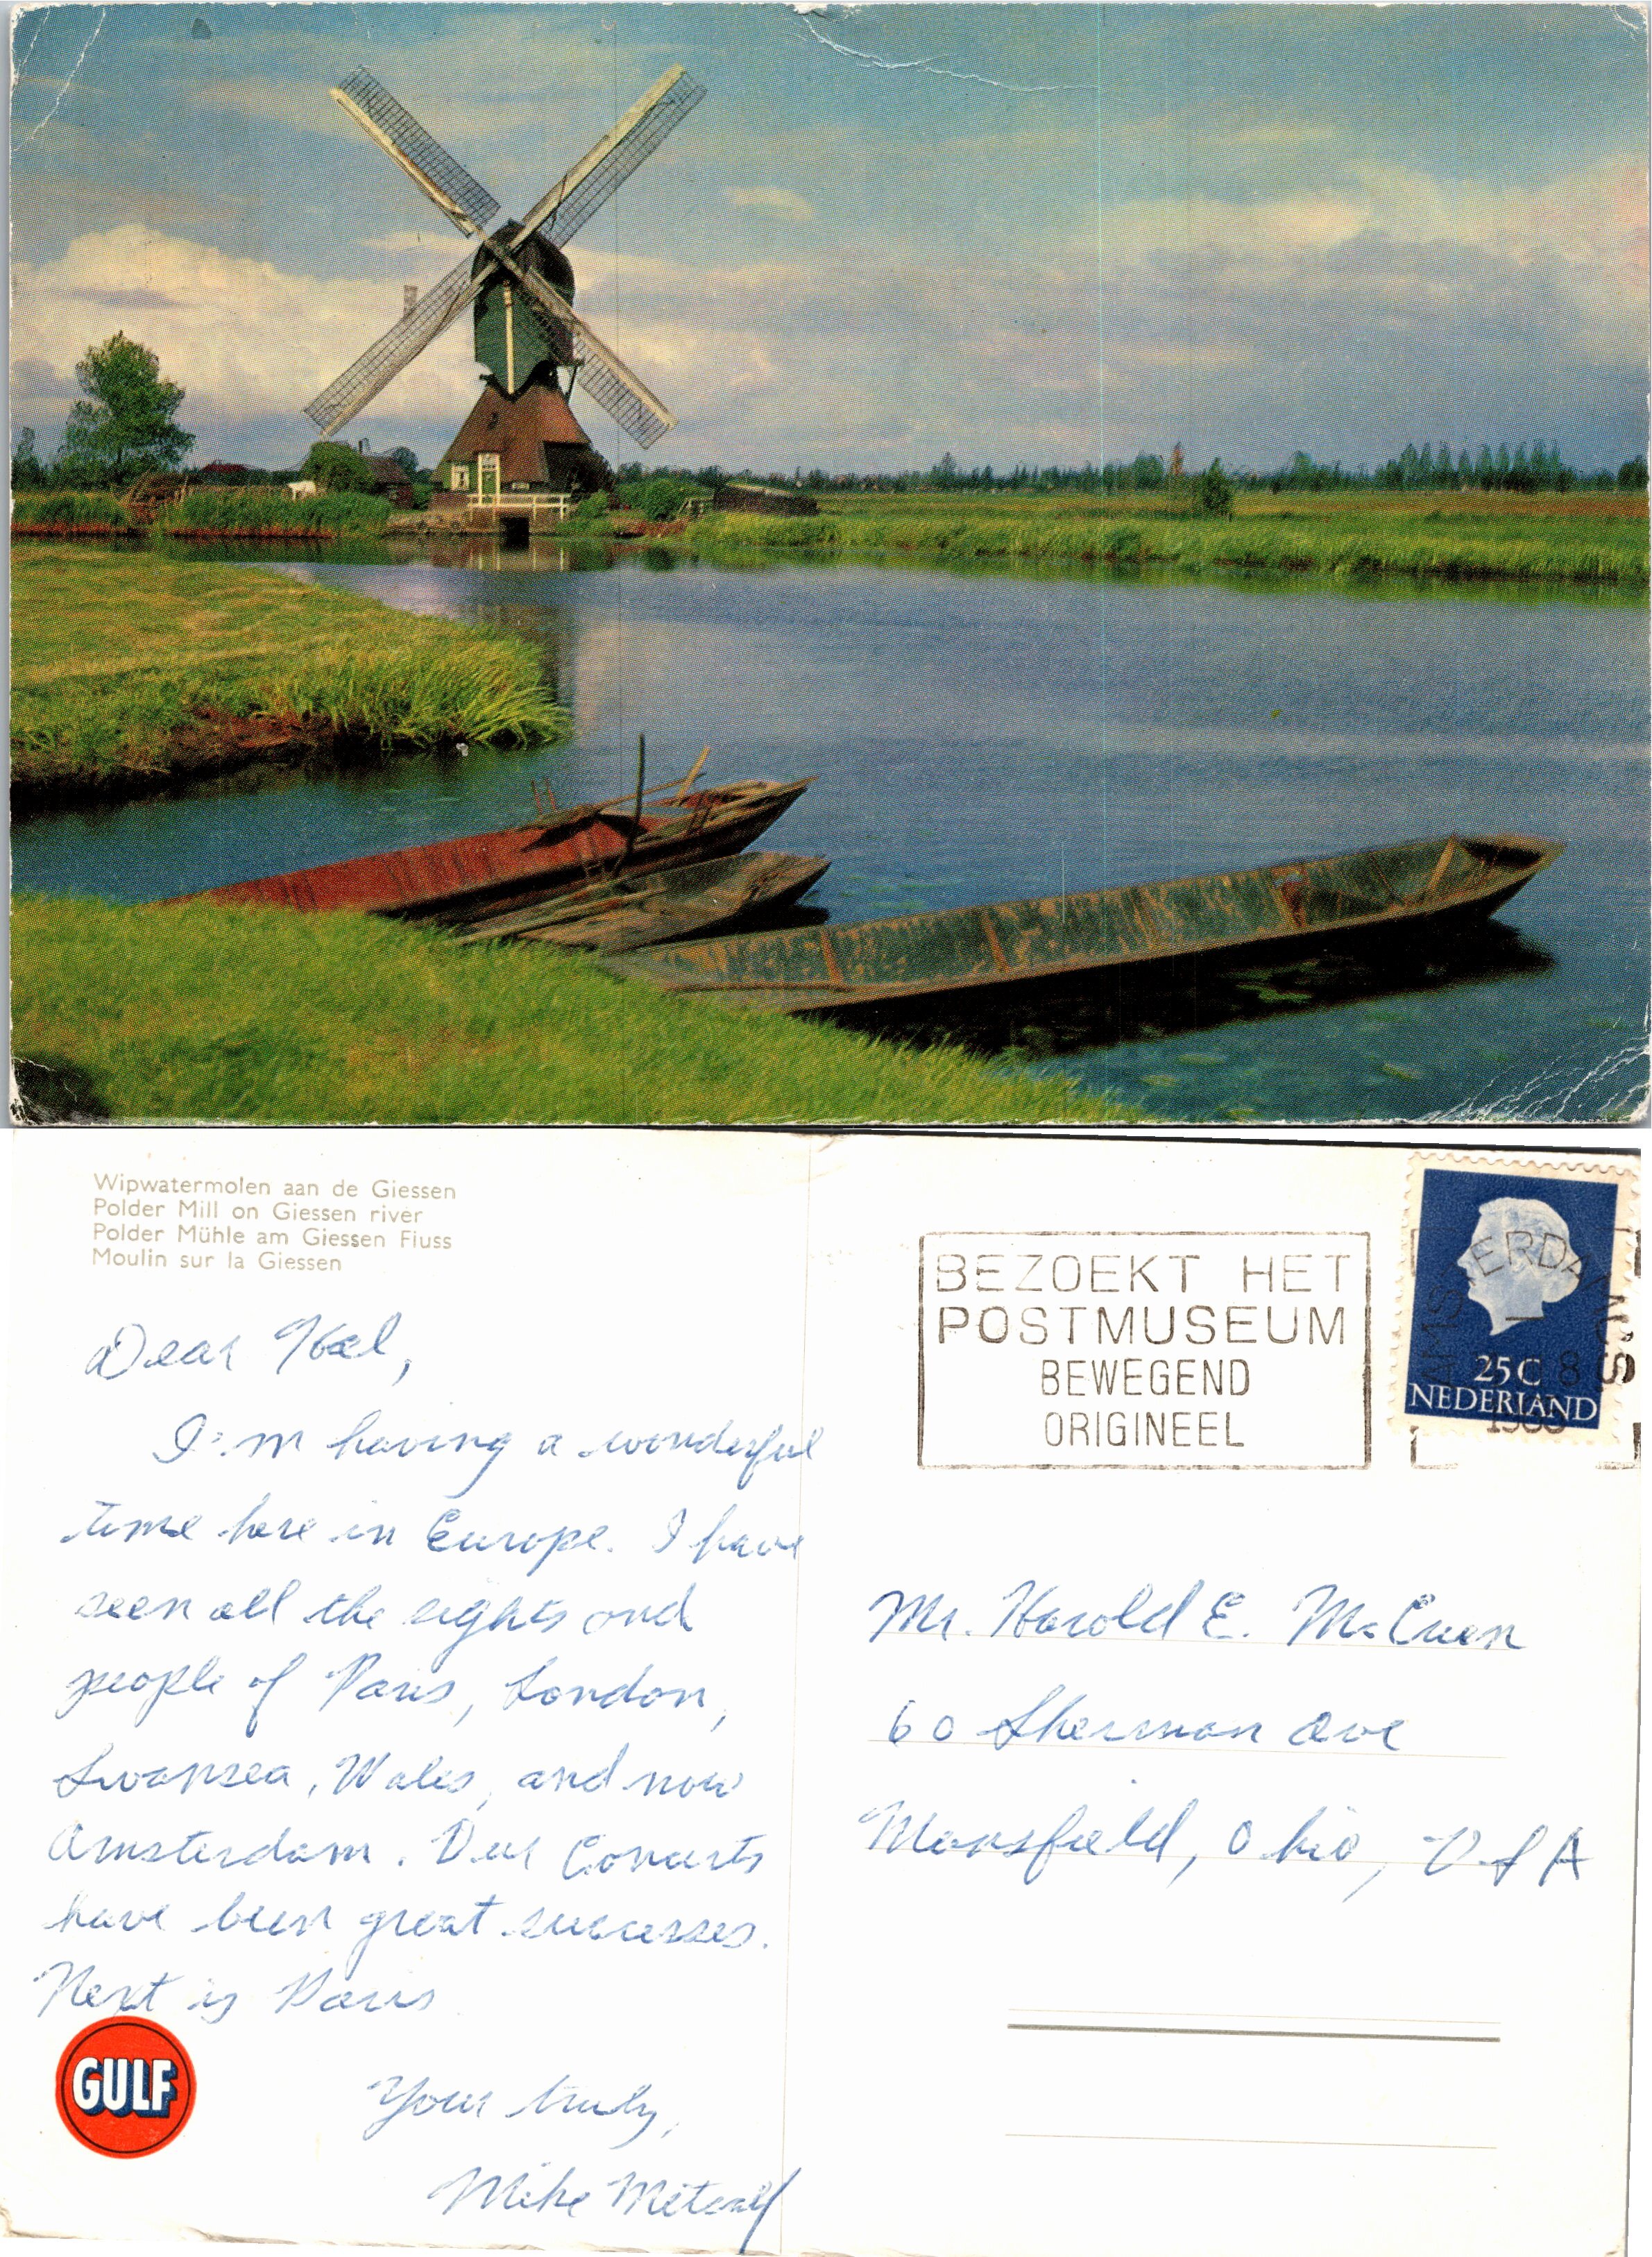 Wipwatermolen aan de Giessen
Polder Mill on Giessen river
Polder Mühle am Giessen Fluss
Moulin sur la Giessen
Dear Hal,
I'm having a wonderful
time here in Europe. I have
seen all the sights and
people of Paris, London,
Swansea, Wales, and now
Amsterdam. Our Concerts
have been great successes.
Next is Paris
Your truly,
Mike Metcalf
GULF
BEZOEKT HET
POSTMUSEUM
BEWEGEND
ORIGINEEL
AMSTERDAM C.S
25 C
NEDERLAND
Mr. Harold E. McCuen
60 Sherman Ave
Mansfield, Ohio, USA